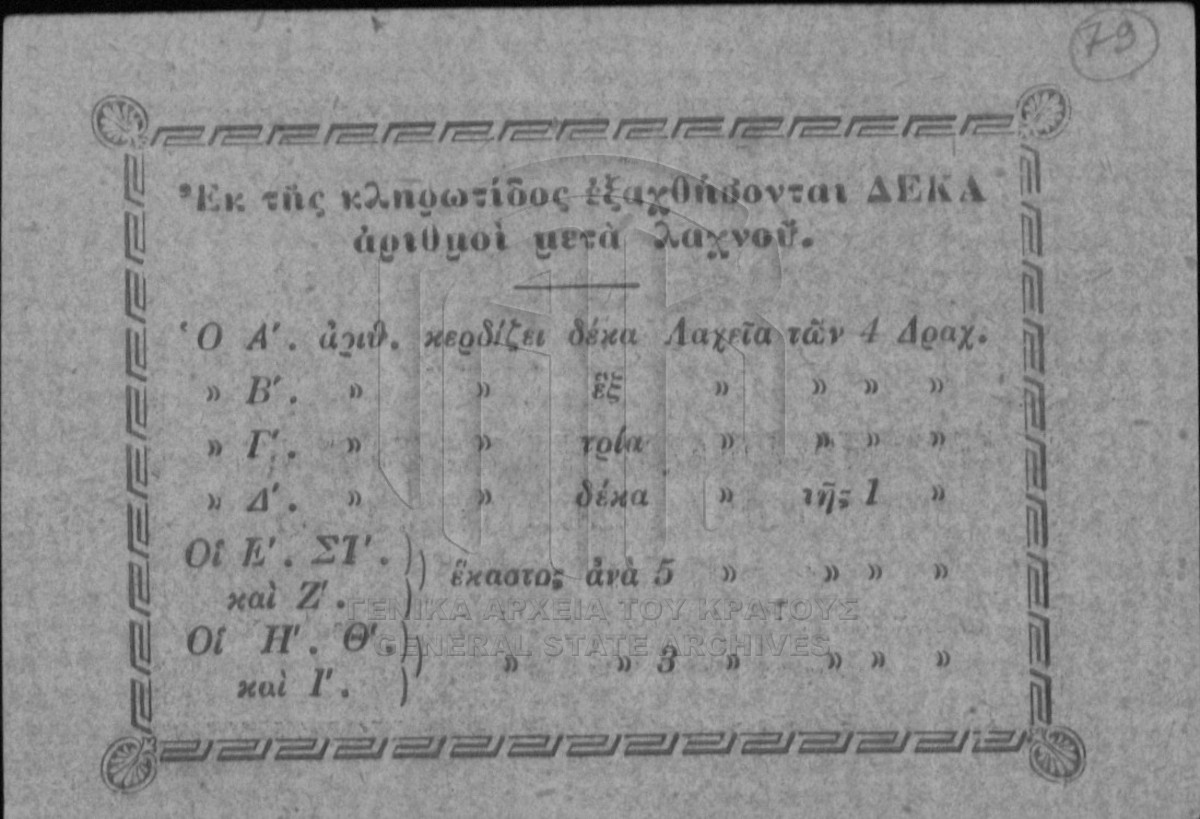 79
Ἐκ τῆς κληρωτίδος ἐξαχθήσονται ΔΕΚΑ
ἀριθμοὶ μετὰ λαχνοῦ.
Ὁ Α′. ἀριθ. κερδίζει δέκα Λαχεῖα τῶν 4 Δραχ.
» Β′. » » ἓξ » » » »
» Γ′. » » τρία » » » »
» Δ′. » » δέκα » τῆς 1 »
Οἱ Ε′. ΣΤ′.
καὶ Ζ′. ) ἕκαστος ἀνὰ 5 » » » »
Οἱ Η′. Θ′.
καὶ Ι′. ) » » 3 » » » »
ΓΕΝΙΚΑ ΑΡΧΕΙΑ ΤΟΥ ΚΡΑΤΟΥΣ
GENERAL STATE ARCHIVES